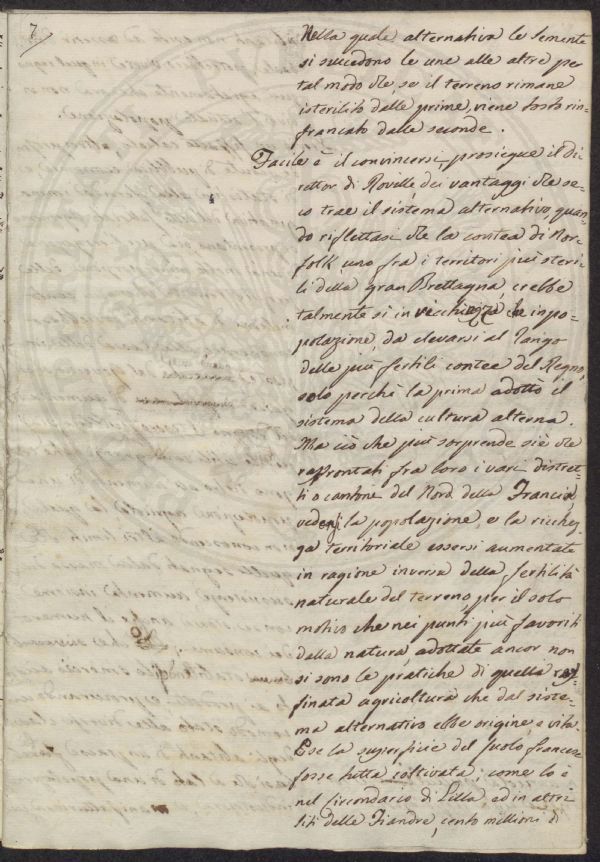 7.
Nella quale alternativa le Semente
si succedono le une alle altre per
tal modo che se il terreno rimane
isterilito dalle prime, viene tosto rin-
francato dalle seconde.
Facile è il convincersi, prosiegue il di-
rettor di Roville, dei vantaggi che se-
co trae il sistema alternativo, quan-
do riflettasi che la contea di Nor-
folk, uno fra i territori più steri-
li della gran Brettagna, crebbe
talmente si in ricchezza che in po-
polazione, da elevarsi al rango
delle più fertili contee del Regno,
solo perché la prima adottò il
sistema della cultura alterna.
Ma ciò che più sorprende si è che
raffrontati fra loro i vari distret-
ti o cantone del Nord della Francia
vedesi la popolazione, e la ricchez-
za territoriale essersi aumentate
in ragione inversa della fertilità
naturale del terreno, per il solo
motivo che nei punti più favoriti
dalla natura, adottate ancor non
si sono le pratiche di quella raf-
finata agricoltura che dal siste-
ma alternativo ebbe origine e vita.
E se la superficie del suolo francese
fosse tutta coltivata, come lo è
nel circondario di Lilla ed in altri
siti delle Fiandre, cento millioni di